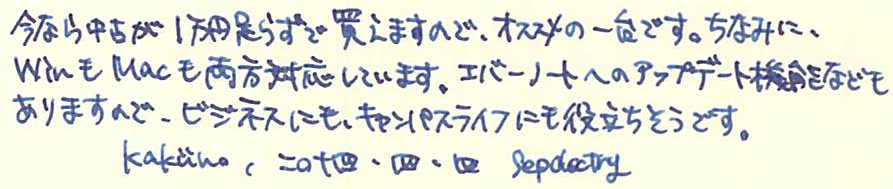 今なら中古が1万円足らずで買えますので、オススメの一台です。ちなみに、
WinもMacも両方対応しています。エバーノートへのアップデート機能なども
ありますので、ビジネスにも、キャンパスライフにも役立ちそうです。
二〇十四・四・四